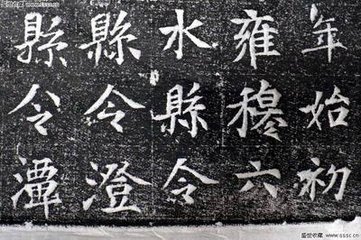 年始初
雍穆六
水縣令
縣令澄
縣令潭
盛世收藏 www.sssc.cn